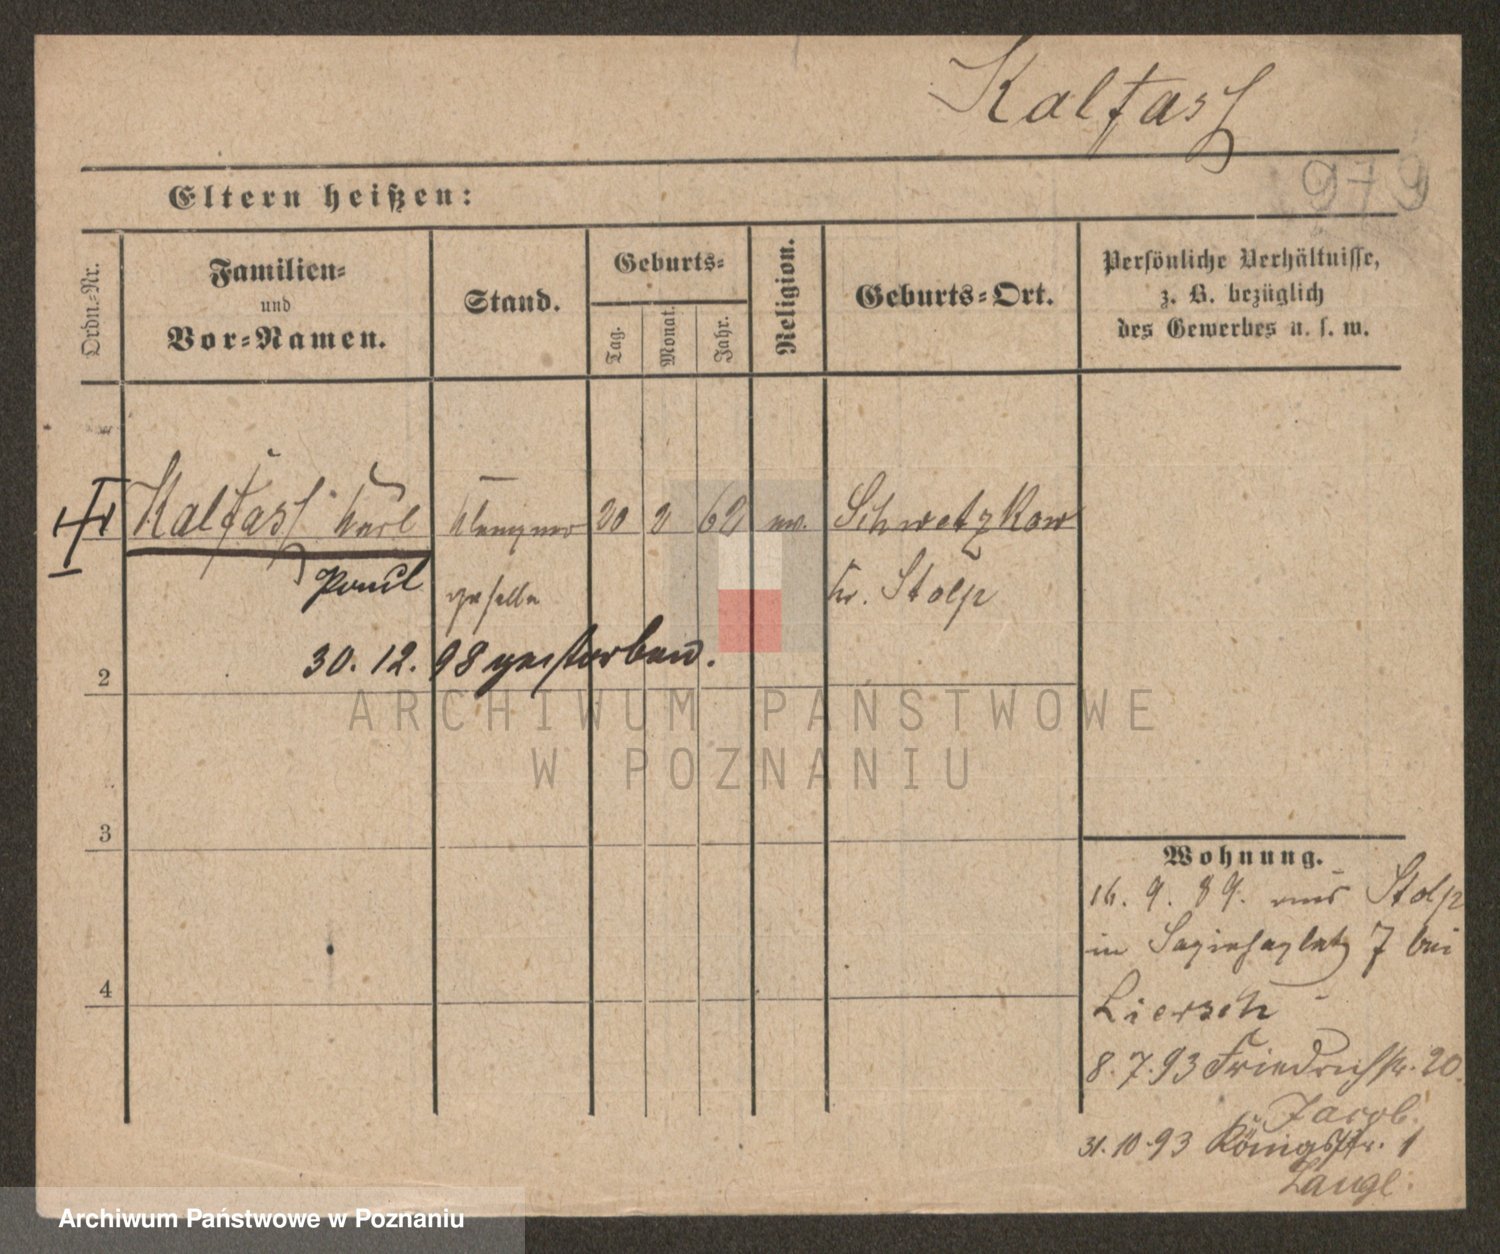 Kalfass
979
Eltern heißen:
Ordn.-Nr.
Familien-
und
Vor-Namen.
Stand.
Geburts-
Tag.
Monat.
Jahr.
Religion.
Geburts-Ort.
Persönliche Verhältnisse,
z. B. bezüglich
des Gewerbes u. s. w.
Kalfass Karl Klempner 20 2 62 ev. Schwetzkow
Paul geselle Kr. Stolp
30. 12. 98 gestorben.
2
3
4
Wohnung.
16. 9. 89. aus Stolp
in Sapiehaplatz 7 bei
Liersch
8. 7. 93 Friedrichstr. 20.
Jacob.
31. 10. 93 Königstr. 1
Lange.
ARCHIWUM PAŃSTWOWE
W POZNANIU
Archiwum Państwowe w Poznaniu